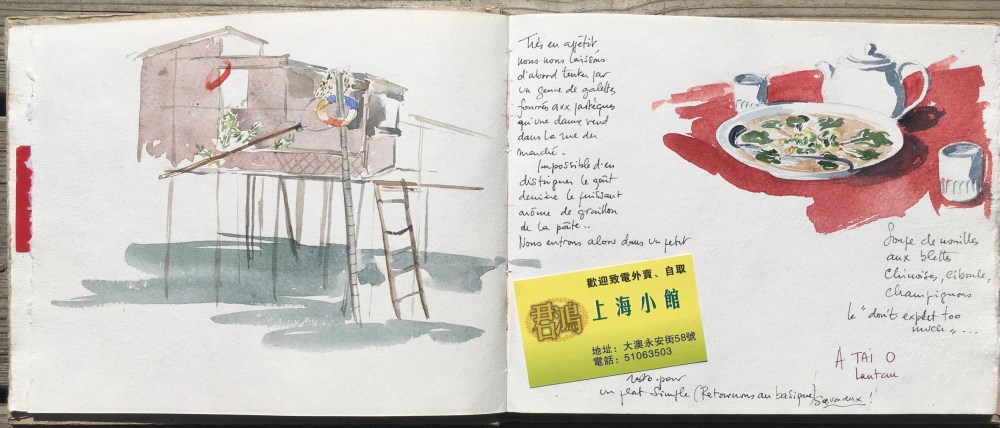 Très en appétit,
nous nous laissons
d'abord tenter par
un genre de galettes
fourrées aux pastèques
qu'une dame vend
dans la rue du
marché.
Impossible d'en
distinguer le goût
derrière le puissant
arôme de graillon
de la pâte..
Nous entrons alors dans un petit
歡迎致電外賣、自取
君鴻
上海小館
地址：大澳永安街58號
電話：51063503
resto pour
un plat simple (Retournons au basique) Savoureux !
Soupe de nouilles
aux blettes
chinoises, ciboule,
champignons
le "don't expect too
much"...
A TAI O
Lantau